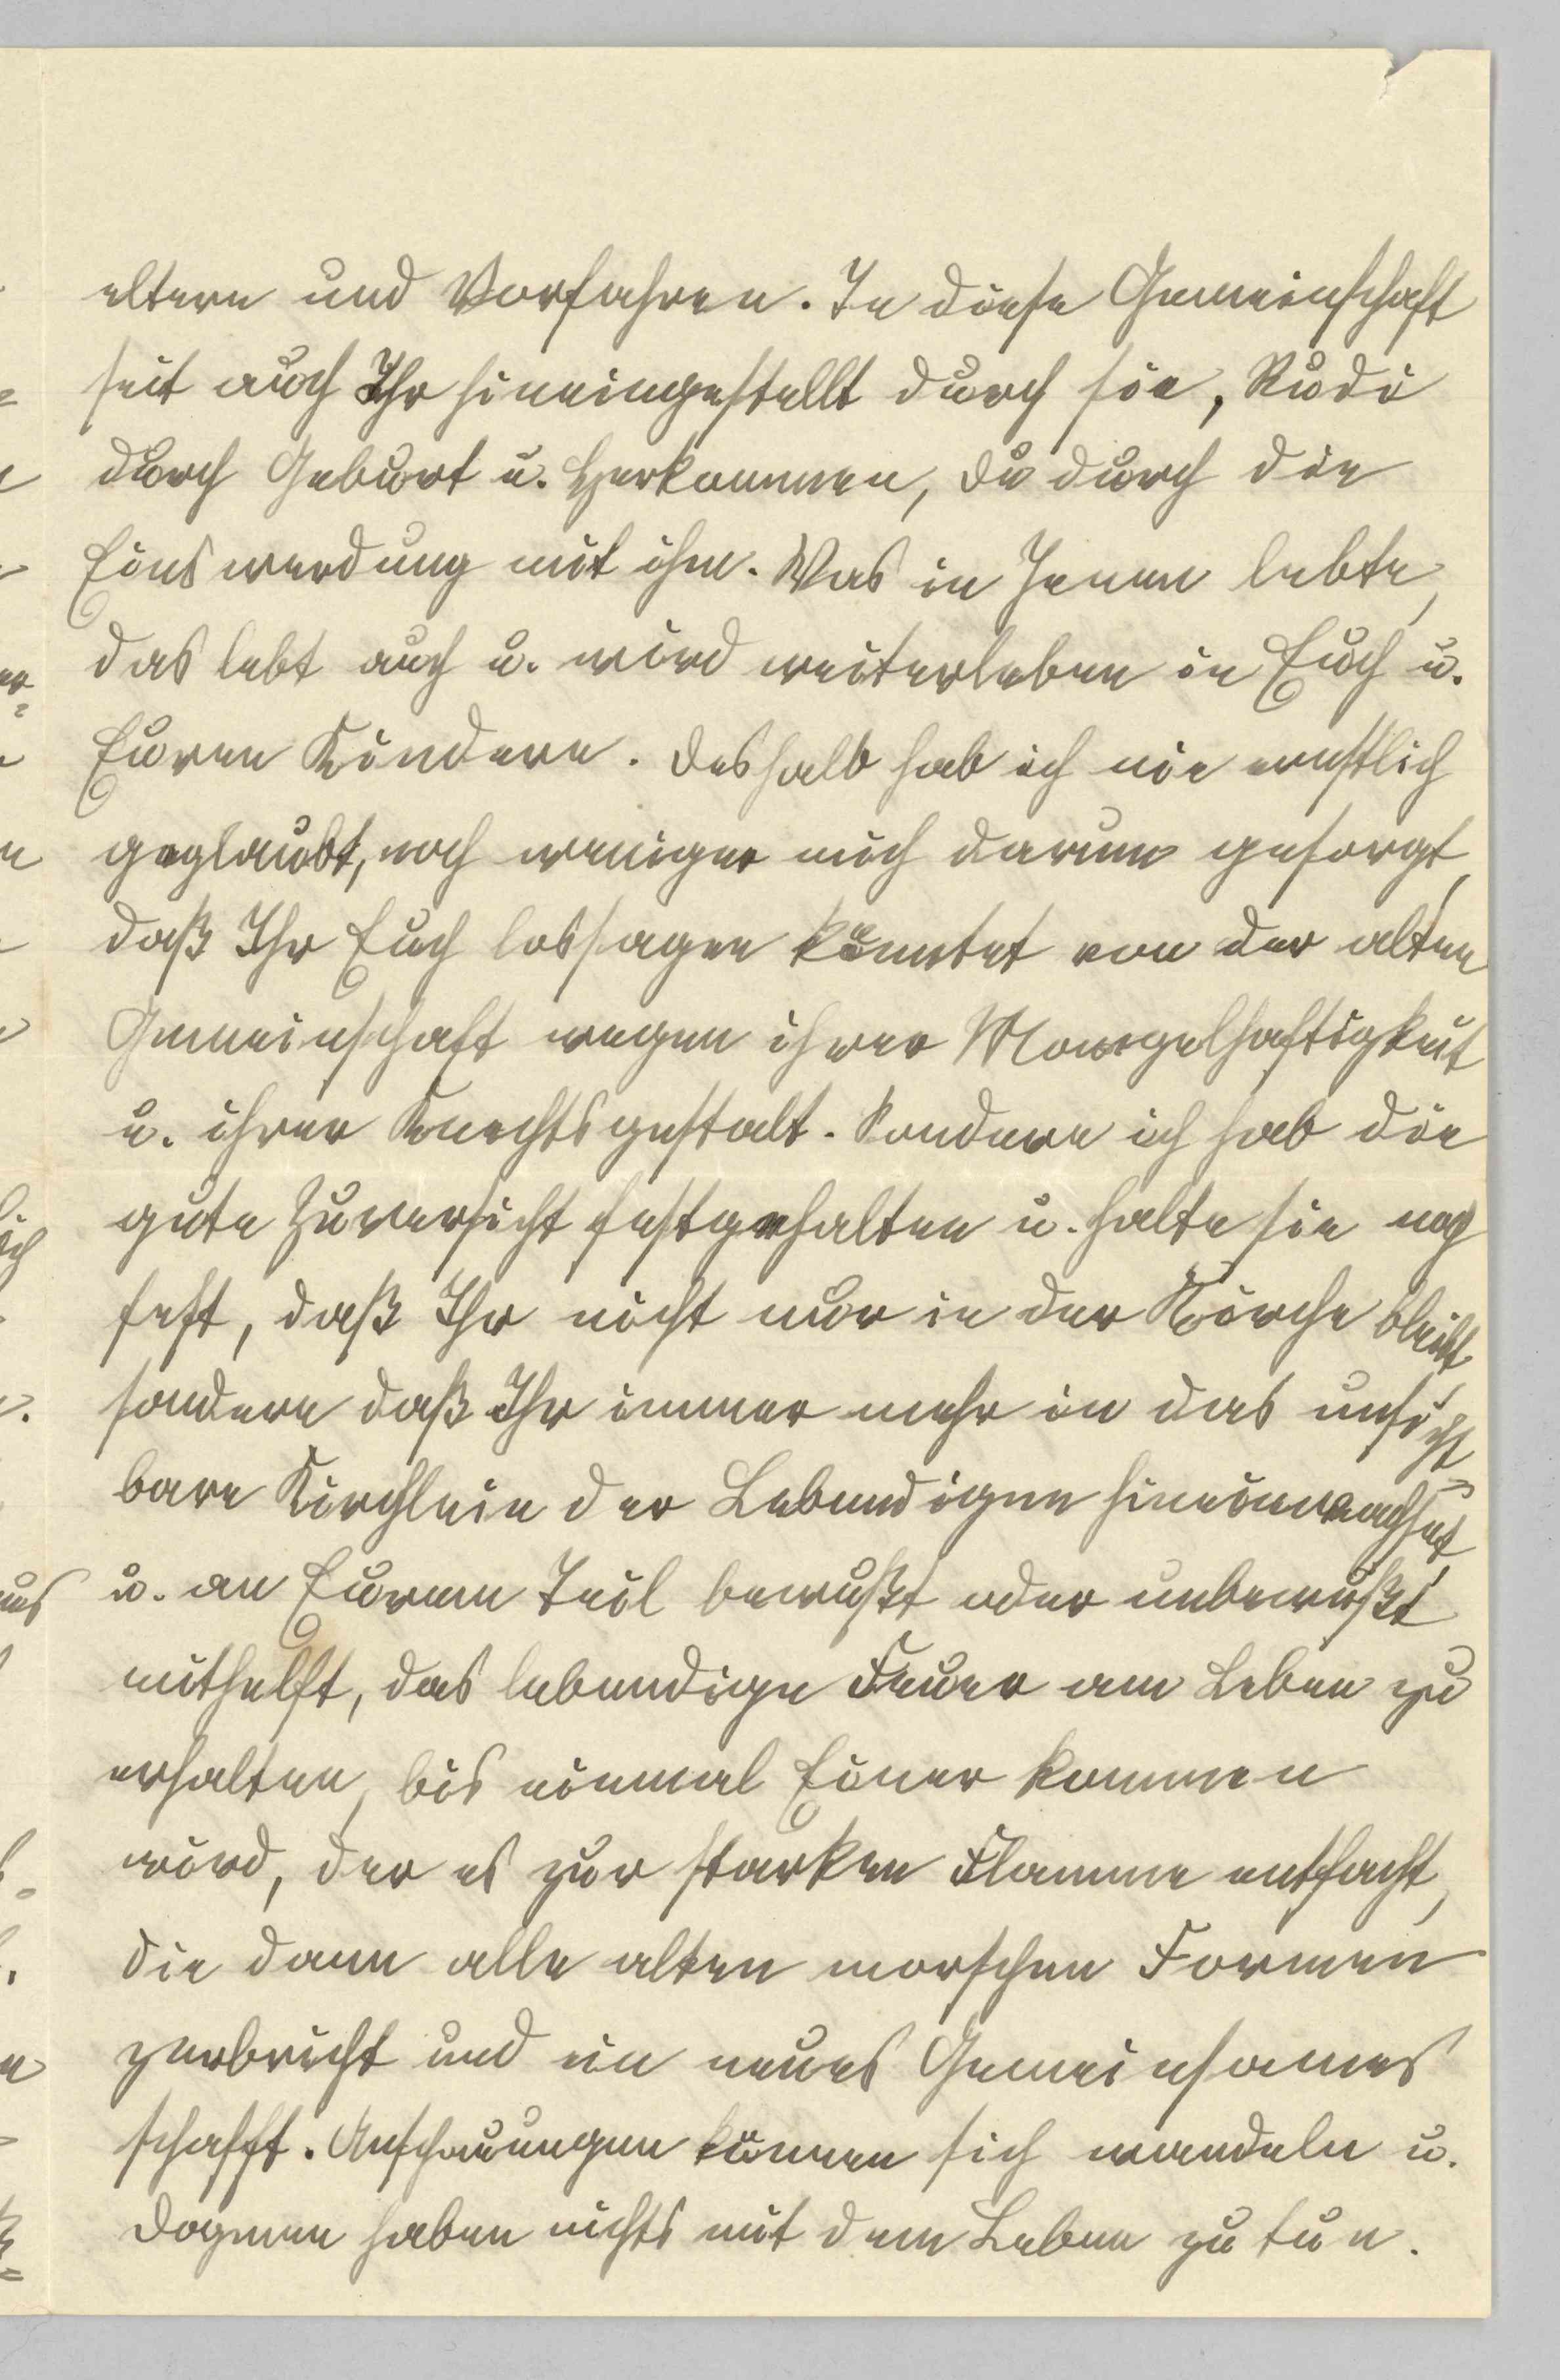 eltern und Vorfahren. In diese Gemeinschaft
seit auch Ihr hineingestellt durch sie, Rudi
durch Geburt u. Herkommen, Du durch die
Einswerdung mit ihm. Was in Jenen lebte,
das lebt auch u. wird weiterleben in Euch u.
Euren Kindern. Deshalb hab ich nie ernstlich
geglaubt, noch weniger mich darum gesorgt,
daß Ihr Euch lossagen könntet von der alten
Gemeinschaft wegen ihrer Mangelhaftigkeit
u. ihrer Knechtsgestalt. Sondern ich hab die
gute Zuversicht festgehalten u. halte sie noch
fest, daß Ihr nicht nur in der Kirche bleibt
sondern daß Ihr immer mehr in das unsicht-
bare Kirchlein der Lebendigen hineinwachset,
u. an Eurem Teil bewußt oder unbewußt
mithelft, das lebendige Feuer am Leben zu
erhalten, bis einmal Einer kommen
wird, der es zur starken Flamme entfacht,
die dann alle alten morschen Formen
zerbricht und ein neues Gemeinsames
schafft. Anschauungen können sich wandeln u.
Dogmen haben nichts mit dem Leben zu tun.